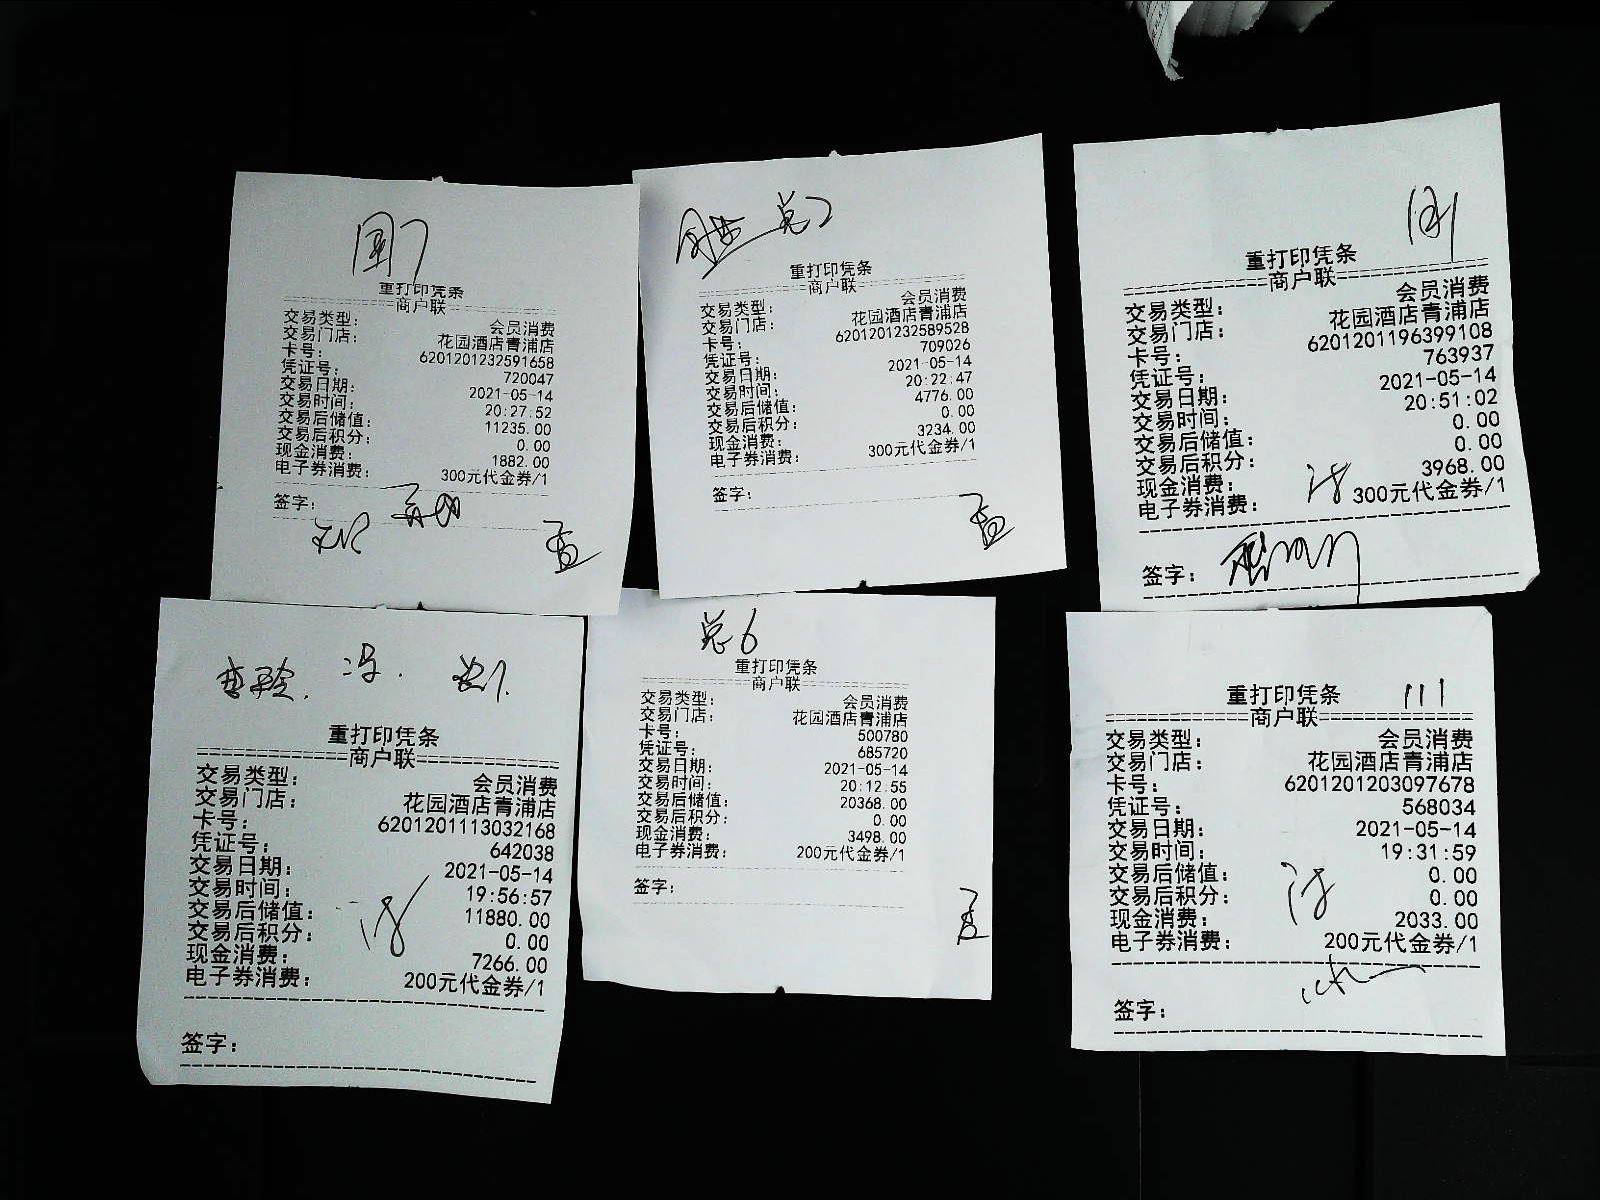 重打印凭条
商户联
交易类型: 会员消费
交易门店: 花园酒店青浦店
卡号: 6201201232591658
凭证号: 720047
交易日期: 2021-05-14
交易时间: 20:27:52
交易后储值: 11235.00
交易后积分: 0.00
现金消费: 1882.00
电子券消费: 300元代金券/1
签字:
总2
重打印凭条
商户联
交易类型: 会员消费
交易门店: 花园酒店青浦店
卡号: 6201201232589528
凭证号: 709026
交易日期: 2021-05-14
交易时间: 20:22:47
交易后储值: 4776.00
交易后积分: 0.00
现金消费: 3234.00
电子券消费: 300元代金券/1
签字:
重打印凭条
商户联
交易类型: 会员消费
交易门店: 花园酒店青浦店
卡号: 6201201196399108
凭证号: 763937
交易日期: 2021-05-14
交易时间: 20:51:02
交易后储值: 0.00
交易后积分: 0.00
现金消费: 3968.00
电子券消费: 300元代金券/1
签字:
重打印凭条
商户联
交易类型: 会员消费
交易门店: 花园酒店青浦店
卡号: 6201201113032168
凭证号: 642038
交易日期: 2021-05-14
交易时间: 19:56:57
交易后储值: 11880.00
交易后积分: 0.00
现金消费: 7266.00
电子券消费: 200元代金券/1
签字:
总6
重打印凭条
商户联
交易类型: 会员消费
交易门店: 花园酒店青浦店
卡号: 500780
凭证号: 685720
交易日期: 2021-05-14
交易时间: 20:12:55
交易后储值: 20368.00
交易后积分: 0.00
现金消费: 3498.00
电子券消费: 200元代金券/1
签字:
111
重打印凭条
商户联
交易类型: 会员消费
交易门店: 花园酒店青浦店
卡号: 6201201203097678
凭证号: 568034
交易日期: 2021-05-14
交易时间: 19:31:59
交易后储值: 0.00
交易后积分: 0.00
现金消费: 2033.00
电子券消费: 200元代金券/1
签字: